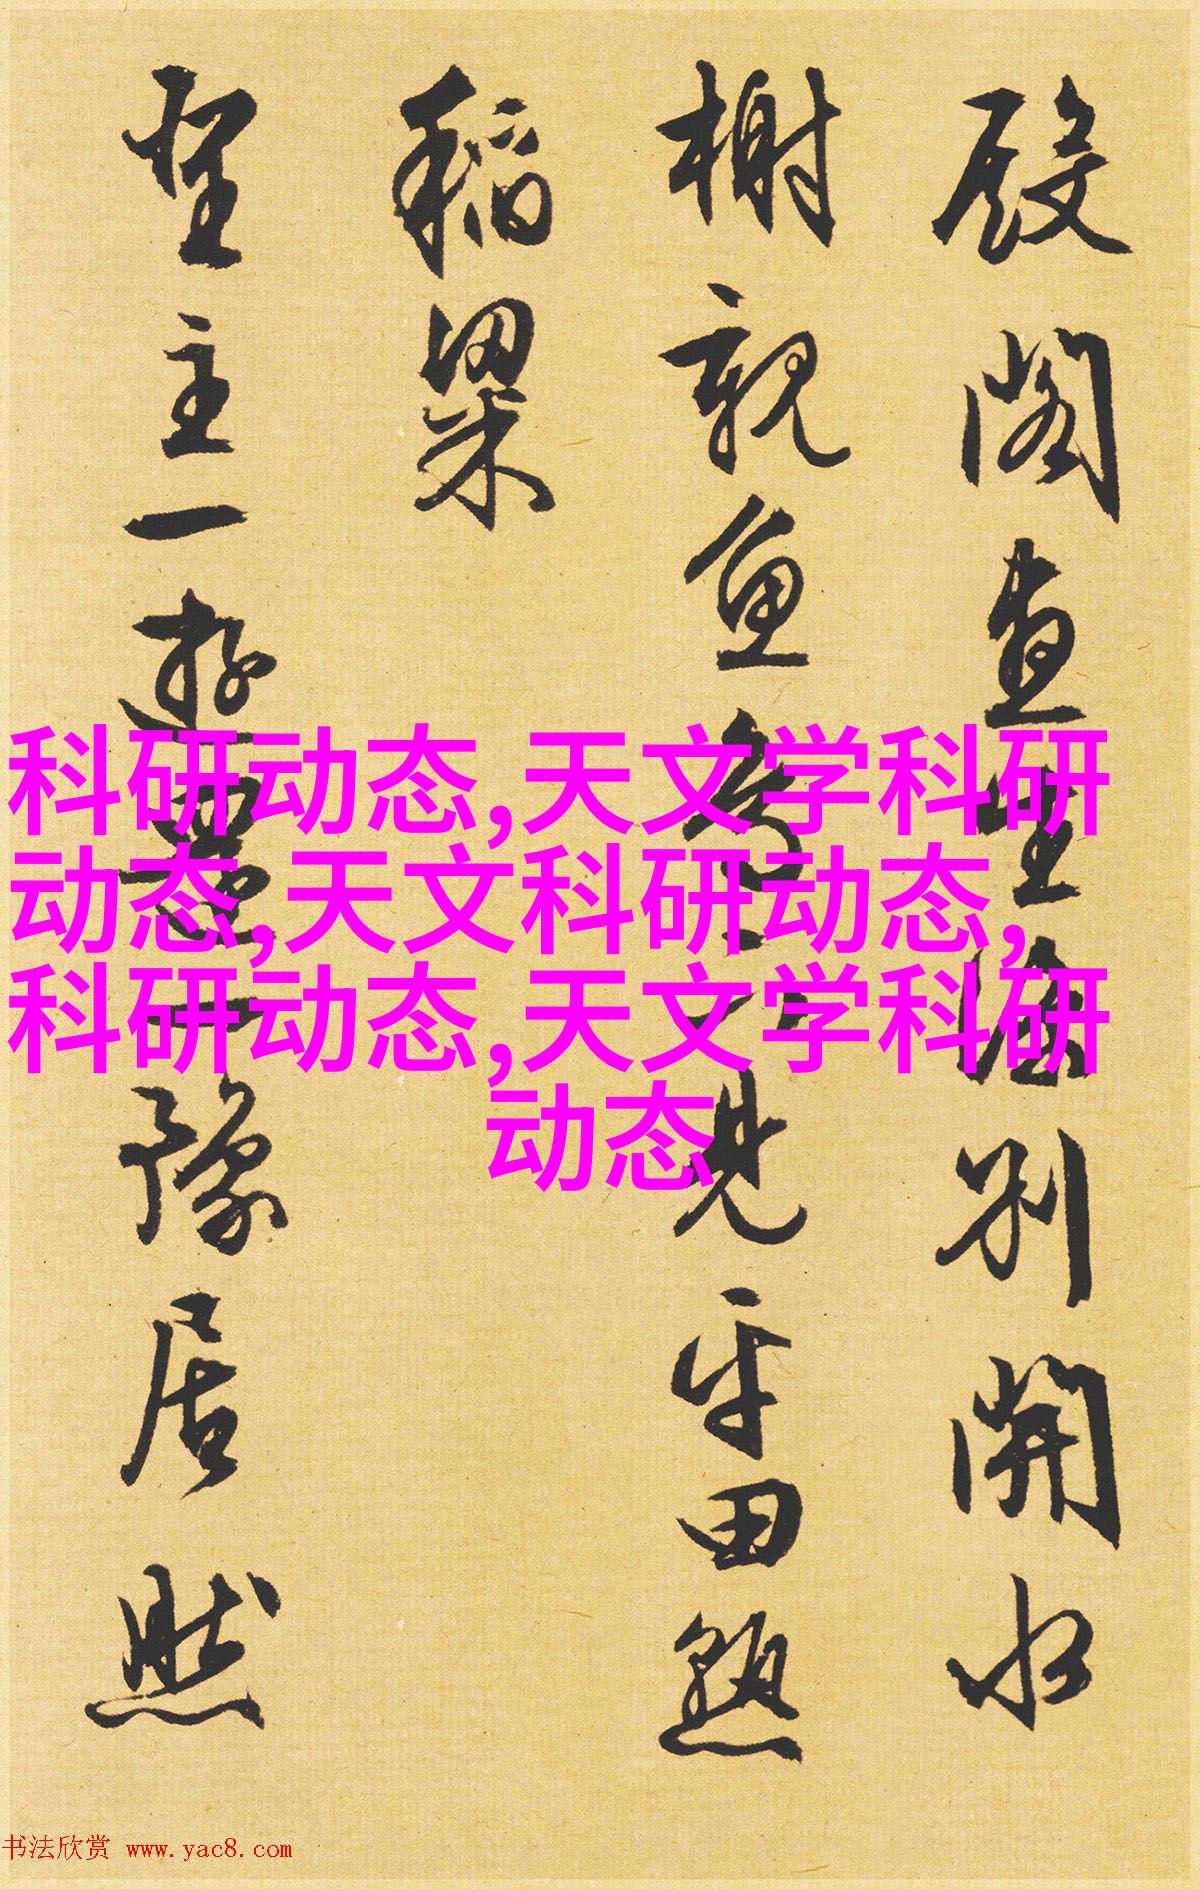 殿阁直生阴别开水
榭观鱼乐六见平田熟
稻粱
圣主一游还一豫居然
科研动态,天文学科研
动态,天文科研动态,
科研动态,天文学科研
动态
书法欣赏 www.yac8.com